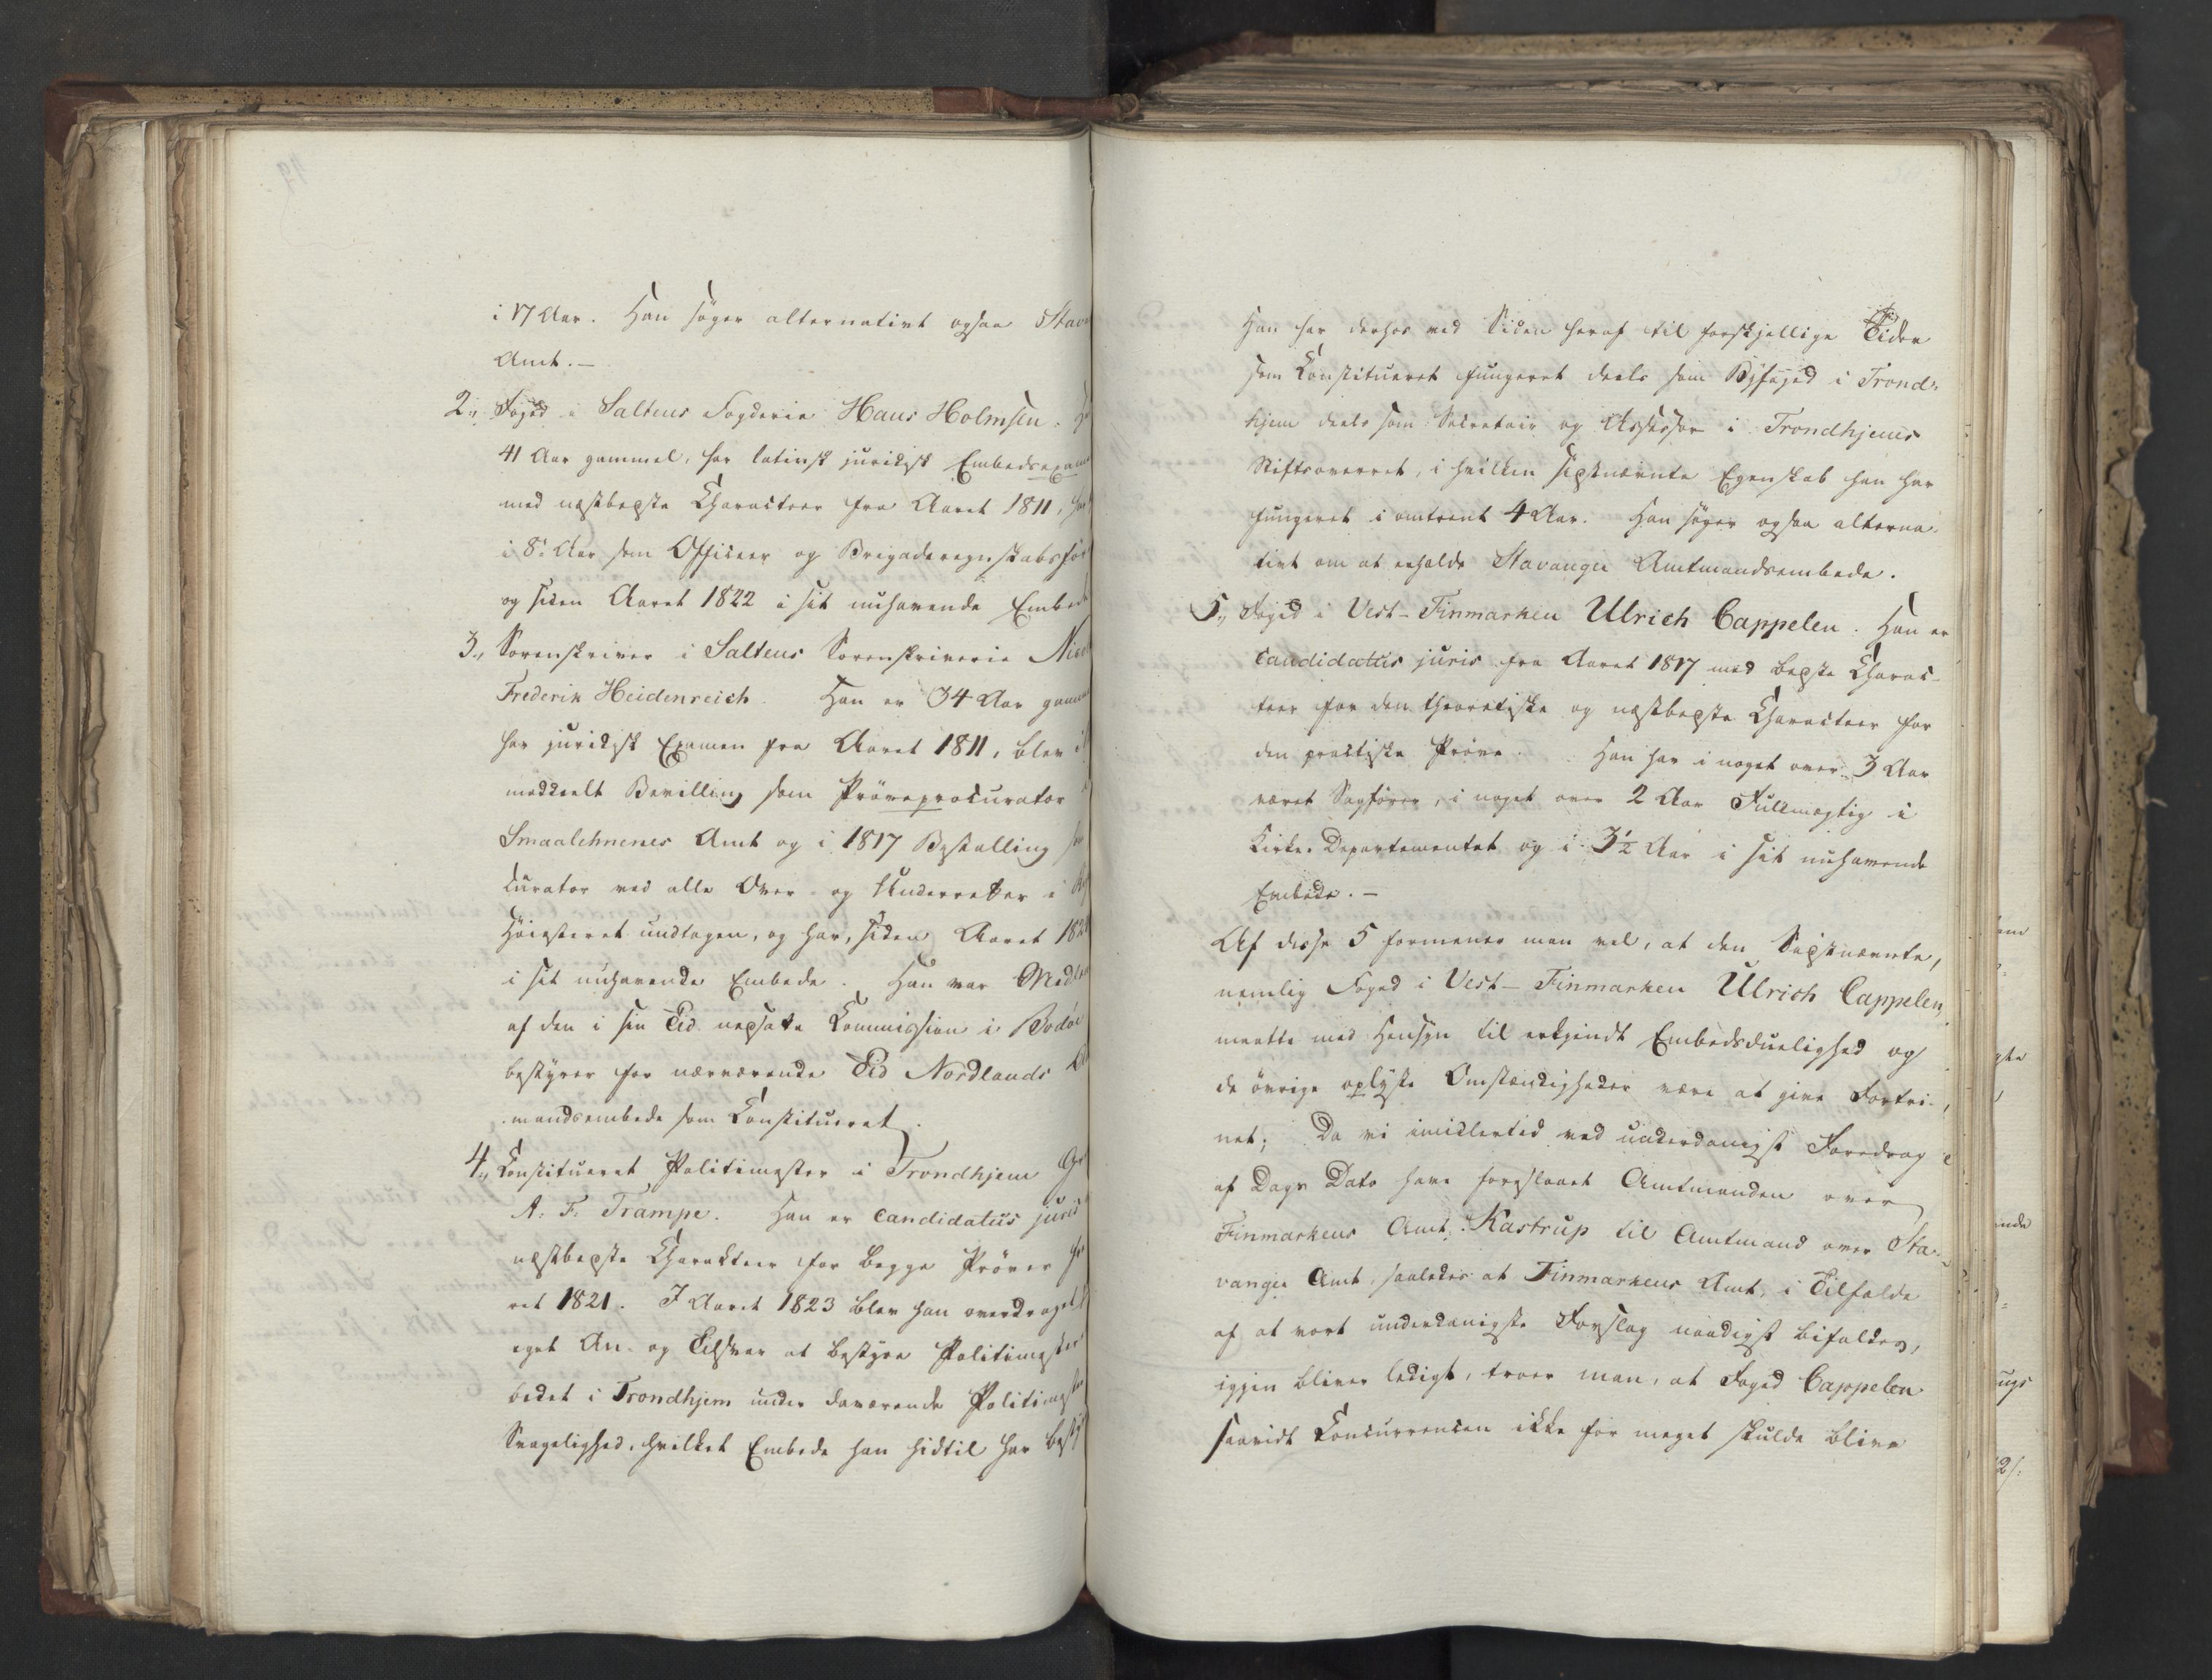 i 17 Aar. Han søger alternativt ogsaa Stav
Amt.—
2., Foged i Saltens Fogderie Hans Holmsen.
41 Aar gammel, har latinsk juridisk Embedsexam
med næstbeste Characteer fra Aaret 1811,
i 8 Aar som Officeer og Brigaderegnskabsfør
og siden Aaret 1822 i sit nuhavende Embed
3., Sorenskriver i Saltens Sorenskriverie Nico
Frederik Heidenreich. Han er 34 Aar gam
har juridisk Examen fra Aaret 1811, blev i
meddeelt Bevilling som Prøveprocurator
Smaalehnenes Amt og i 1817 Bestalling
curator ved alle Over- og Underretter i
Høiesteret undtagen, og har, siden Aaret 182
i sit nuhavende Embede. Han var Medl
af den i sin Tid nedsatte Commission i Bodøe
bestyrer for nærværende Tid Nordlands
mandsembede som Constitueret.
4., Constitueret Politimester i Trondhjem Gr
A: F: Trampe. Han er candidatus juris
næstbeste Charakteer for begge Prøver
ret 1821. I Aaret 1823 blev han overdraget
eget An- og Tilsvar at bestyre Politimester
bedet i Trondhjem under daværende Politimest
Svagelighed, hvilket Embede han hidtil har besty
Han har derhos ved Siden heraf til forskjellige Tider
som Constitueret fungeret deels som Byfoged i Trond-
hjem deels som Secretair og Assessor i Trondhjems
Stiftsoverret, i hvilken sidstnævnte Egenskab han har
fungeret i omtrent 4 Aar. Han søger ogsaa alterna-
tivt om at erholde Stavanger Amtmandsembede.
5., Foged i Vest-Finmarken Ulrich Cappelen. Han er
candidatus juris fra Aaret 1817 med beste Charac-
teer for den theoretiske og næstbeste Characteer for
den practiske Prøve. Han har i noget over 3 Aar
været Sagfører, i noget over 2 Aar Fuldmægtig i
Kirke-Departementet og i 3½ Aar i sit nuhavende
Embede.—
Af disse 5 formener man vel, at den Sidstnævnte,
nemlig Foged i Vest-Finmarken Ulrich Cappelen,
maatte med Hensyn til erkjendt Embedsduelighed og
de øvrige oplyste Omstændigheder være at give Fortri-
net; Da vi imidlertid ved underdanigst Foredrag
af Dags Dato have foreslaaet Amtmanden over
Finmarkens Amt, Kastrup til Amtmand over Sta-
vanger Amt, saaledes at Finmarkens Amt, i Tilfælde
af at vort underdanigste Forslag naadigst bifaldes,
igjen bliver ledigt, troer man, at Foged Cappelen
saavidt Concurrencen ikke for meget skulde blive